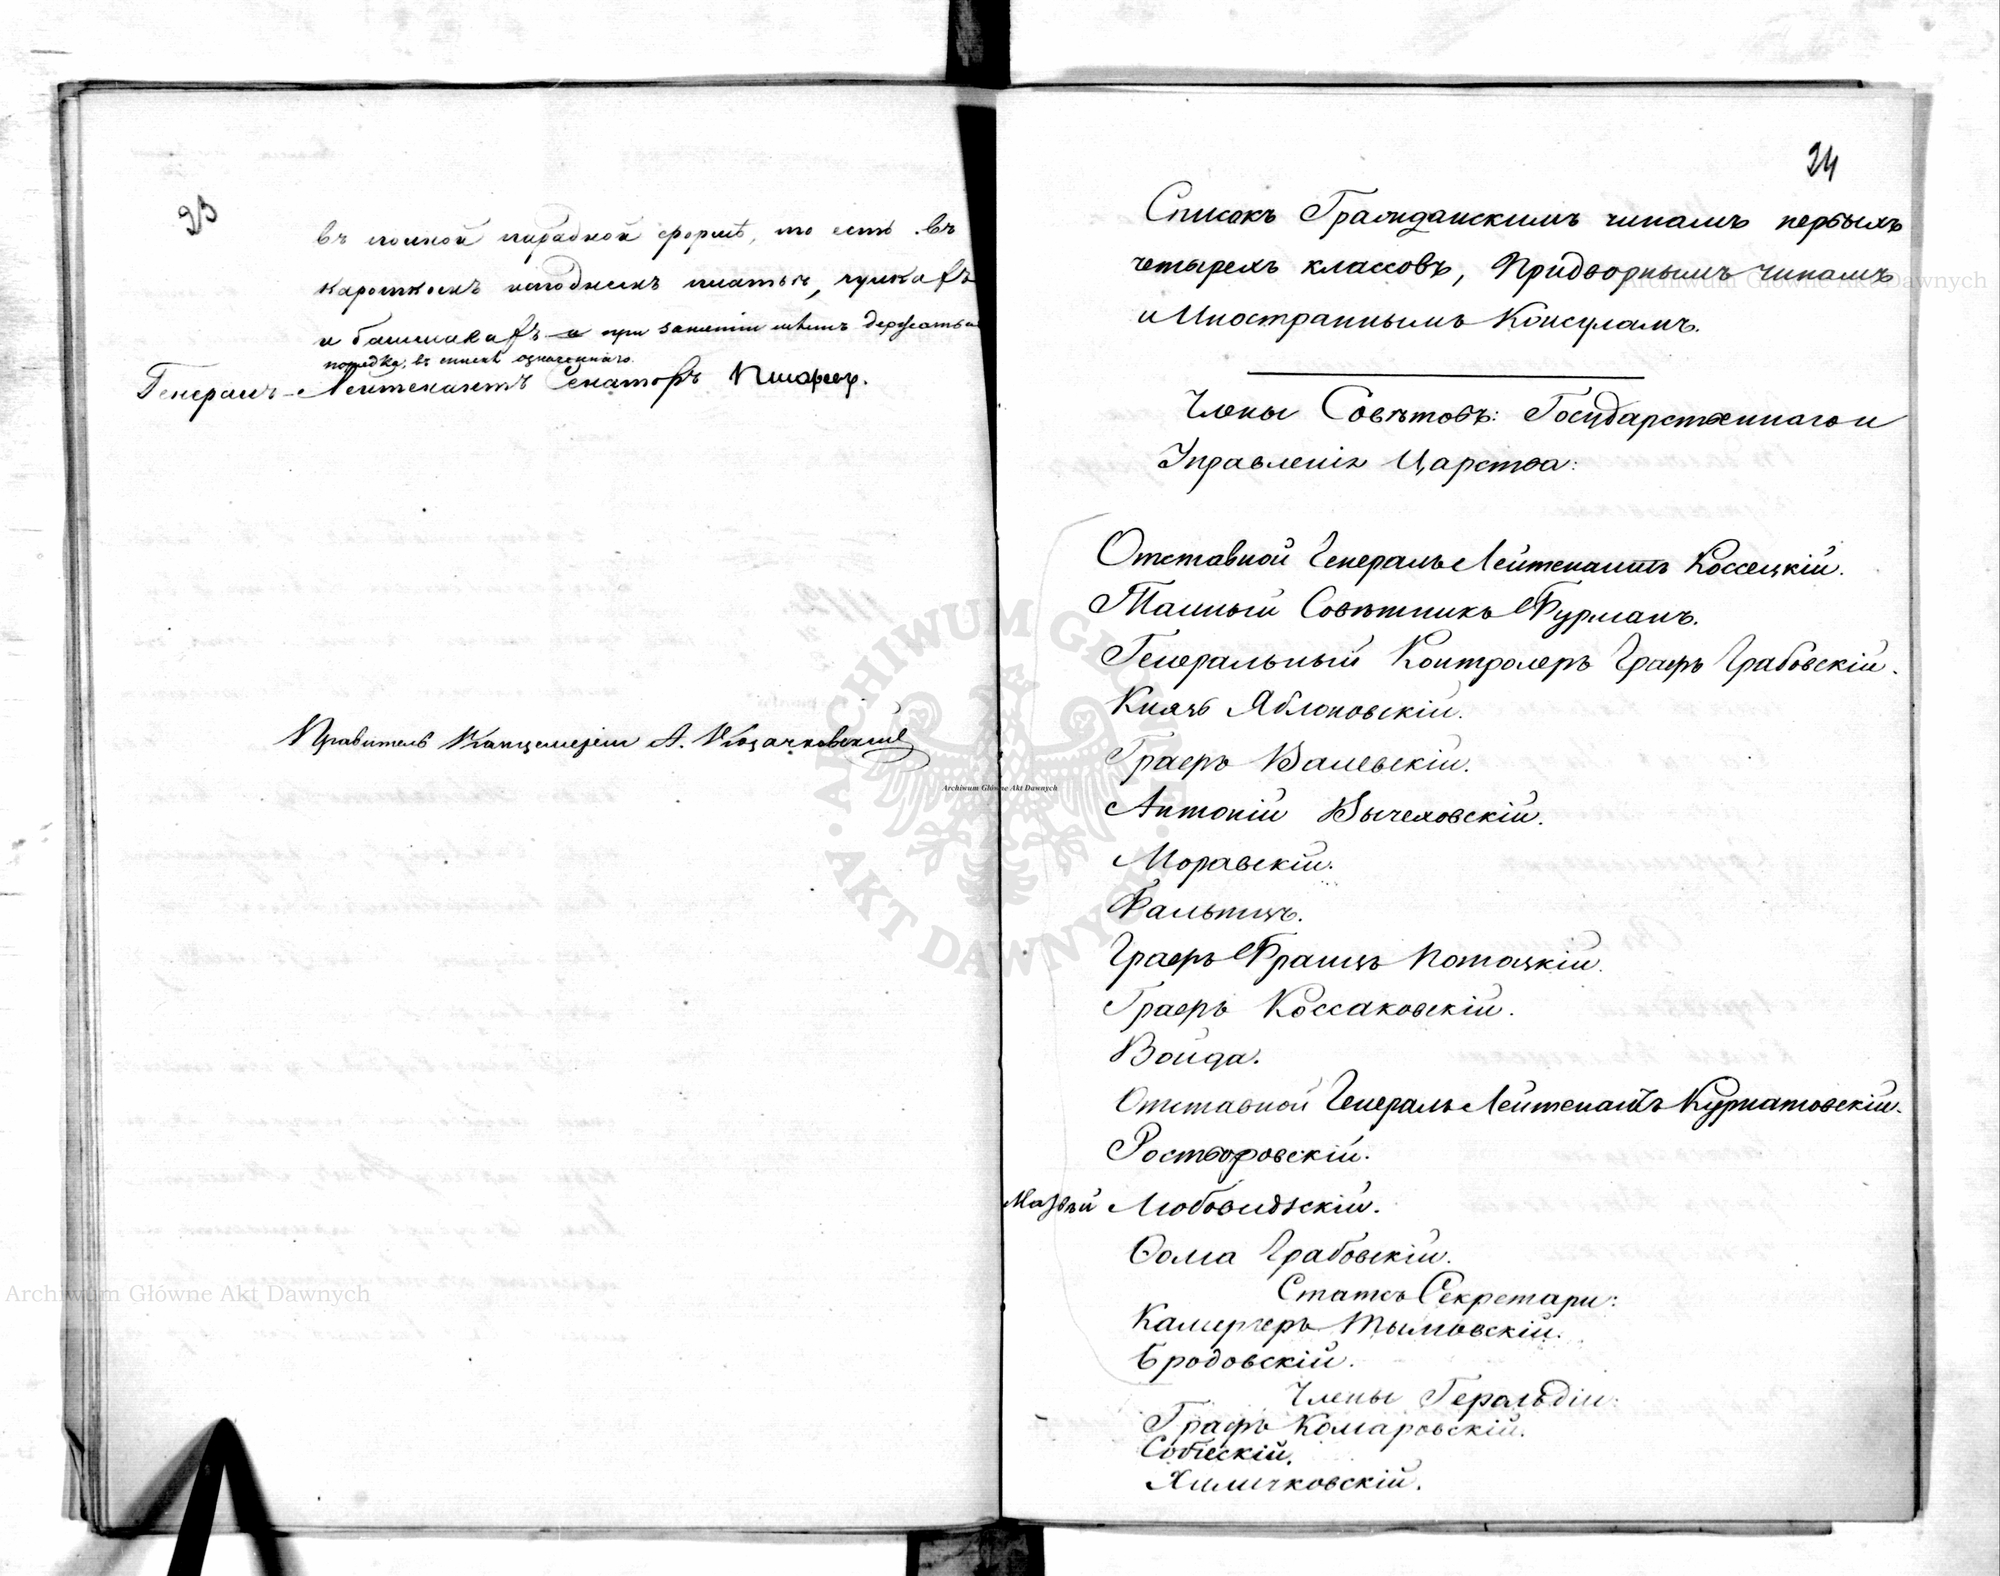 23
въ полной парадной формѣ, то есть въ
короткомъ исподнемъ платьѣ, чулкахъ
и башмакахъ и при занятіи мѣстъ держаться
порядка, въ спискѣ означеннаго.
Генералъ-Лейтенантъ Сенаторъ Писаревъ.
Правитель Канцеляріи А. Козачковскій
24
Списокъ Гражданскимъ чинамъ первыхъ
четырехъ классовъ, Придворнымъ чинамъ
и Иностраннымъ Консуламъ.
Члены Совѣтовъ: Государственнаго и
Управленія Царства:
Отставной Генералъ Лейтенантъ Коссецкій.
Тайный Совѣтникъ Фурманъ.
Генеральный Контролеръ Графъ Грабовскій.
Князь Яблоновскій.
Графъ Валевскій.
Антоній Вычеховскій.
Моравскій.
Фальтцъ.
Графъ Францъ Потоцкій.
Графъ Коссаковскій.
Войда.
Отставной Генералъ Лейтенантъ Курнатовскій.
Ростворовскій.
Матвѣй Любовидзскій.
Ѳома Грабовскій.
Статсъ Секретари:
Камергеръ Тымовскій.
Бродовскій.
Члены Герольдіи:
Графъ Комаровскій.
Собіескій.
Хиличковскій.
ARCHIWUM GŁÓWNE AKT DAWNYCH
Archiwum Główne Akt Dawnych
Archiwum Główne Akt Dawnych
Archiwum Główne Akt Dawnych